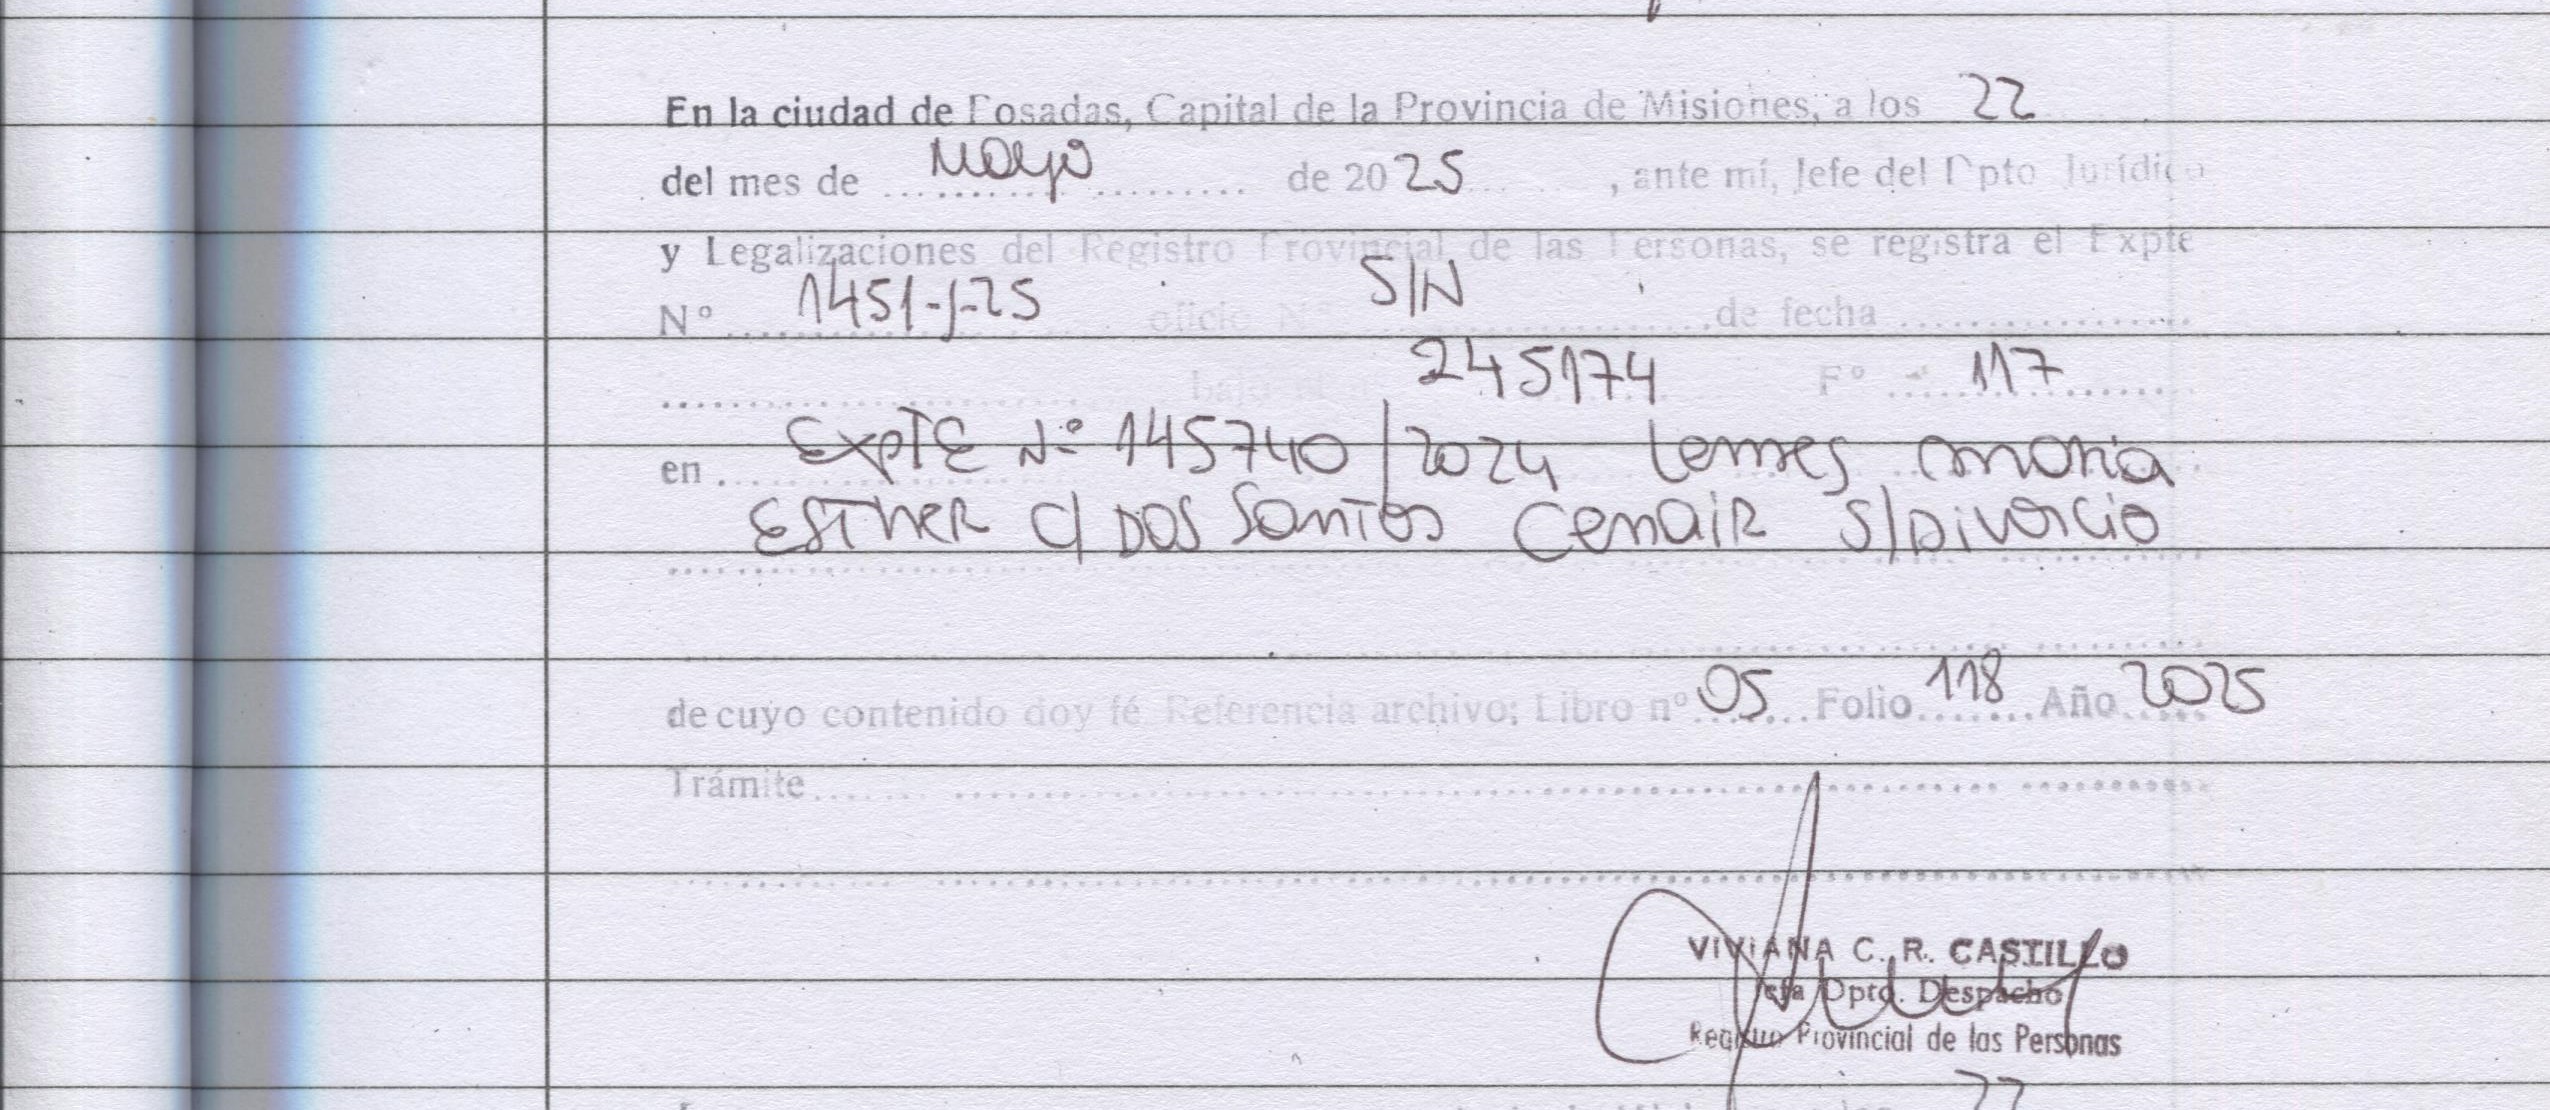 En la ciudad de Posadas, Capital de la Provincia de Misiones, a los 22
del mes de Mayo de 2025, ante mí, Jefe del Dpto Jurídico
y Legalizaciones del Registro Provincial de las Personas, se registra el Expte
Nº 1451-J-25 oficio Nº S/N de fecha
bajo el 245174 Fº 117
en EXPTE Nº 145740/2024 Lemes Maria
ESTHER C/ DOS SANTOS CENAIR S/DIVORCIO
de cuyo contenido doy fé Referencia archivo: Libro nº 05 Folio 118 Año 2025
Trámite
VIVIANA C. R. CASTILLO
Jefa Dpto. Despacho
Registro Provincial de las Personas
22